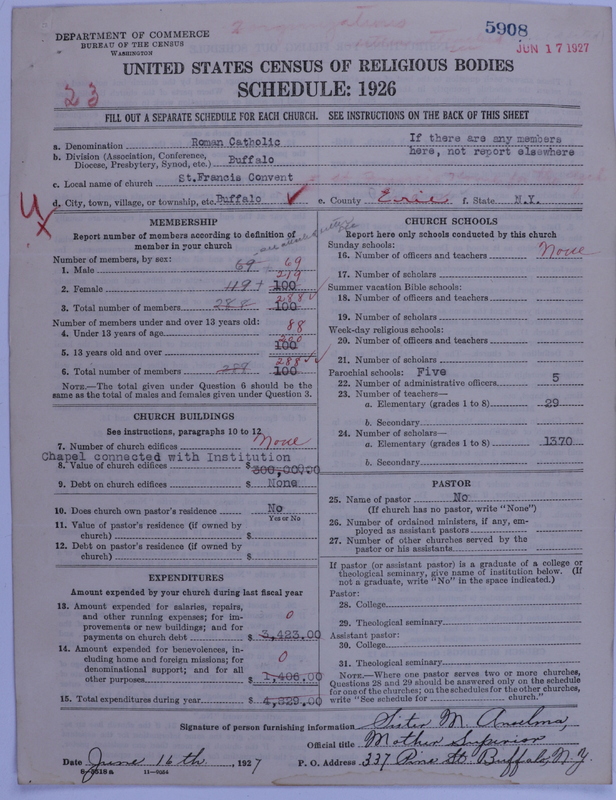 DEPARTMENT OF COMMERCE
BUREAU OF THE CENSUS
WASHINGTON
5908
JUN 17 1927
UNITED STATES CENSUS OF RELIGIOUS BODIES
SCHEDULE: 1926
23
FILL OUT A SEPARATE SCHEDULE FOR EACH CHURCH. SEE INSTRUCTIONS ON THE BACK OF THIS SHEET
a. Denomination Roman Catholic
If there are any members
here, not report elsewhere
b. Division (Association, Conference,
Diocese, Presbytery, Synod, etc.) Buffalo
c. Local name of church St.Francis Convent
d. City, town, village, or township, etc. Buffalo e. County Erie f. State N.Y.
MEMBERSHIP
Report number of members according to definition of
member in your church
Number of members, by sex:
1. Male 69 69
2. Female 119+ 219 100
3. Total number of members 288 288 100
Number of members under and over 13 years old:
4. Under 13 years of age 88
5. 13 years old and over 200 100
6. Total number of members 288 288 100
NOTE.—The total given under Question 6 should be the
same as the total of males and females given under Question 3.
CHURCH BUILDINGS
See instructions, paragraphs 10 to 12
7. Number of church edifices None
Chapel connected with Institution
8. Value of church edifices $ 300,000.00
9. Debt on church edifices $ None
10. Does church own pastor's residence No
Yes or No
11. Value of pastor's residence (if owned by
church) $
12. Debt on pastor's residence (if owned by
church) $
EXPENDITURES
Amount expended by your church during last fiscal year
13. Amount expended for salaries, repairs,
and other running expenses; for im-
provements or new buildings; and for
payments on church debt $ 3,423.00 0
14. Amount expended for benevolences, in-
cluding home and foreign missions; for
denominational support; and for all
other purposes $ 1,406.00 0
15. Total expenditures during year $ 4,829.00
CHURCH SCHOOLS
Report here only schools conducted by this church
Sunday schools:
16. Number of officers and teachers None
17. Number of scholars
Summer vacation Bible schools:
18. Number of officers and teachers
19. Number of scholars
Week-day religious schools:
20. Number of officers and teachers
21. Number of scholars
Parochial schools: Five
22. Number of administrative officers 5
23. Number of teachers—
a. Elementary (grades 1 to 8) 29
b. Secondary
24. Number of scholars—
a. Elementary (grades 1 to 8) 1370
b. Secondary
PASTOR
25. Name of pastor No
(If church has no pastor, write "None")
26. Number of ordained ministers, if any, em-
ployed as assistant pastors
27. Number of other churches served by the
pastor or his assistants
If pastor (or assistant pastor) is a graduate of a college or
theological seminary, give name of institution below. (If
not a graduate, write "No" in the space indicated.)
Pastor:
28. College
29. Theological seminary
Assistant pastor:
30. College
31. Theological seminary
NOTE.—Where one pastor serves two or more churches,
Questions 28 and 29 should be answered only on the schedule
for one of the churches; on the schedules for the other churches,
write "See schedule for church."
Signature of person furnishing information Sister M. Anselma,
Official title Mother Superior
Date June 16th, 1927 P. O. Address 337 Pine St. Buffalo, N.Y.
8-5518a 11—9024